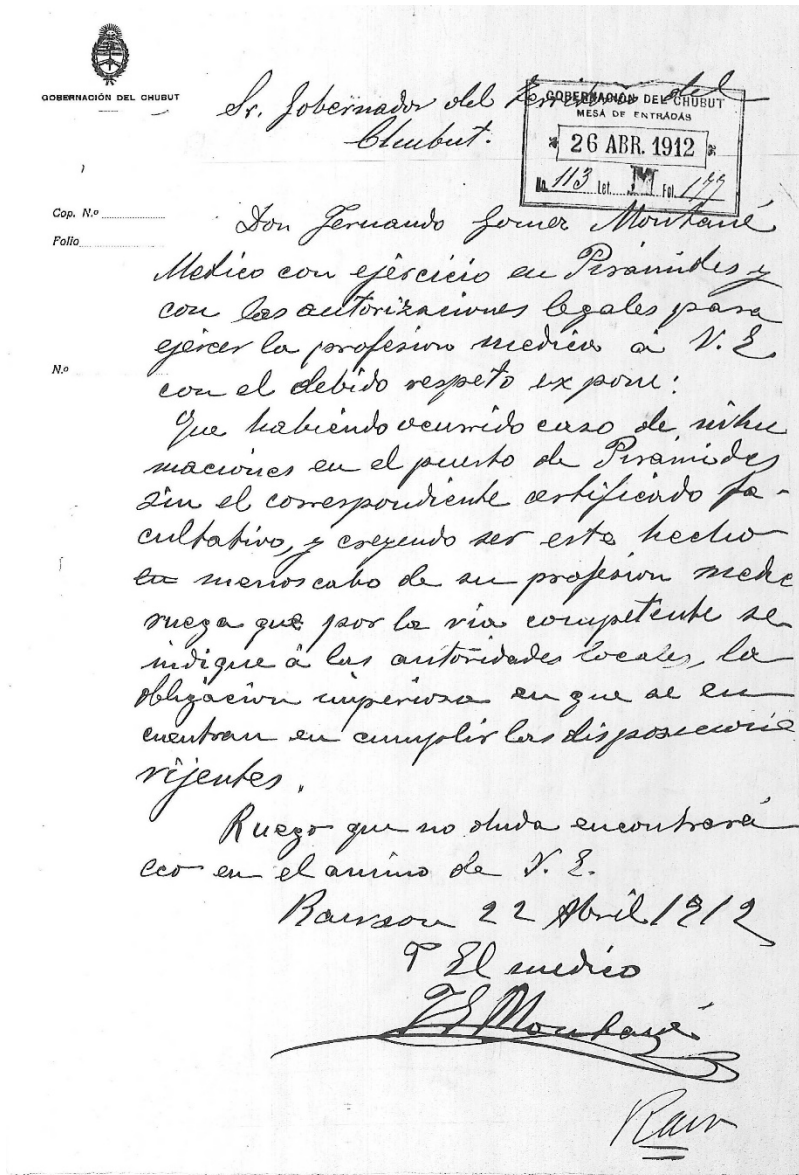 GOBERNACIÓN DEL CHUBUT
Sr. Gobernador del Territorio del
Chubut.
GOBERNACIÓN DEL CHUBUT
MESA DE ENTRADAS
26 ABR. 1912
No. 113 Let. M Fol. 177
Cop. N.º
Folio
N.º
Don Fernando Gomez Montané
Medico con ejercicio en Piramides y
con las autorizaciones legales para
ejercer la profesion medica á V. E
con el debido respeto expone:
Que habiendo ocurrido caso de inhu
maciones en el puerto de Piramides
sin el correspondiente certificado fa-
cultativo, y creyendo ser este hecho
en menoscabo de su profesion medic
ruega que por la via competente se
indique á las autoridades locales, la
obligacion imperiosa en que se en
cuentran en cumplir las disposicione
vijentes.
Ruego que no duda encontrará
eco en el animo de V. E.
Rawson 22 Abril 1912
El medico
Montané
Raw